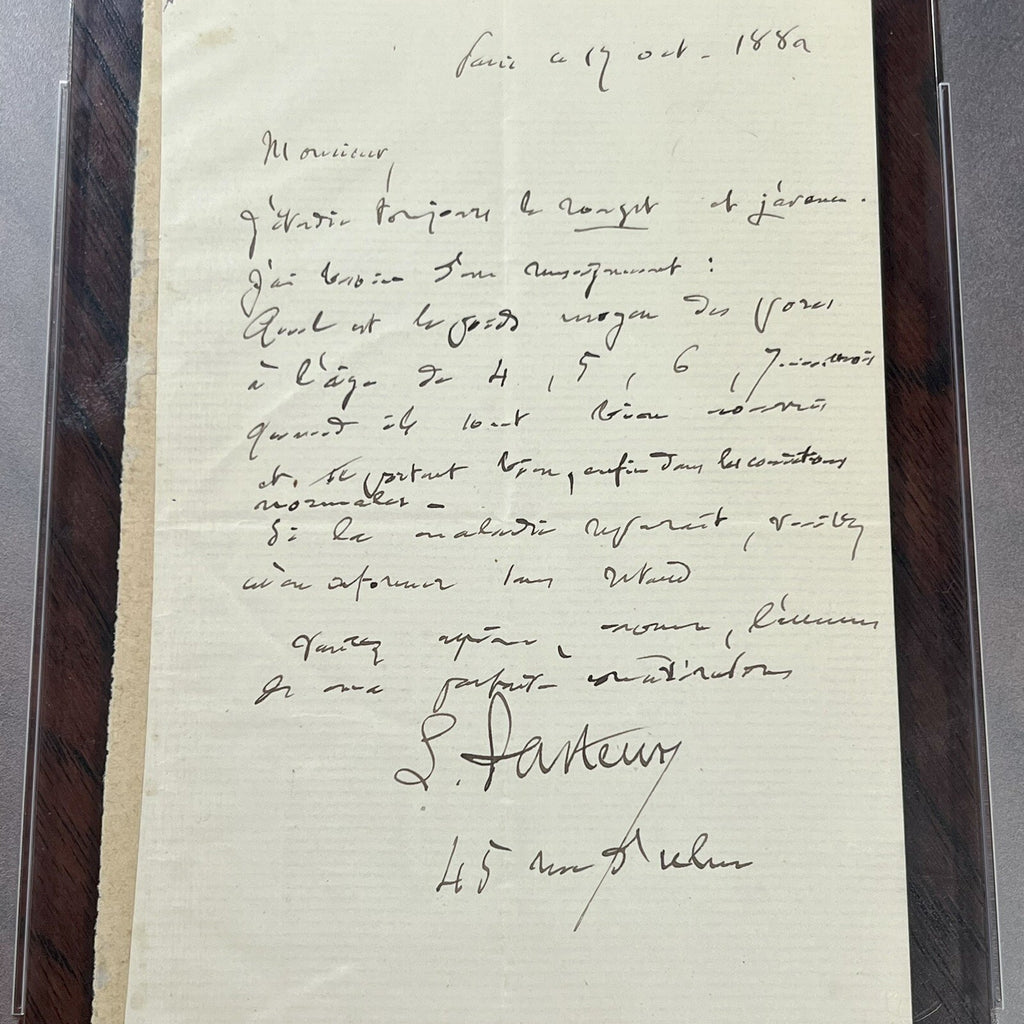 Paris ce 17 oct. 1882
Monsieur,
J'étudie toujours le rouget et j'avance.
J'ai besoin d'un renseignement :
Quel est le poids moyen des porcs
à l'âge de 4, 5, 6, 7 mois
quand ils sont bien nourris
et se portent bien, enfin dans les conditions
normales -
Si la maladie reparaît, veuillez
m'en informer sans retard
Veuillez agréer, Monsieur, l'assurance
de ma parfaite considération
L. Pasteur
45 rue d'Ulm